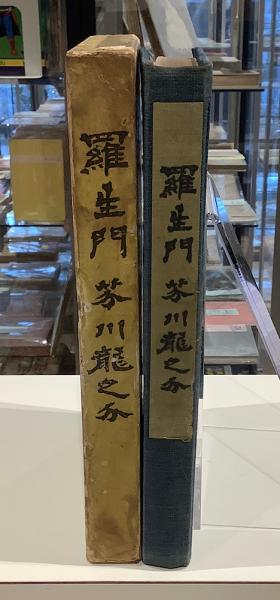 羅生門 芥川龍之介
羅生門 芥川龍之介